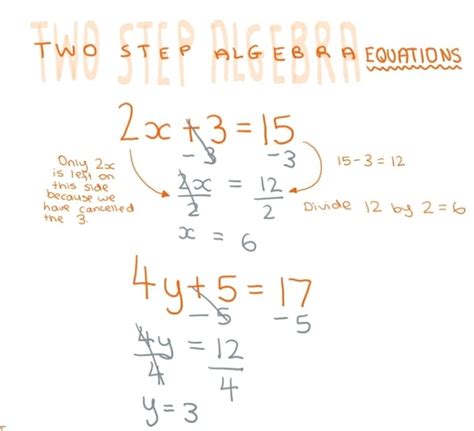 TWO STEP ALGEBRA EQUATIONS
2x + 3 = 15
- 3 -3
15-3 = 12
Only 2x
is left on
this side
because we
have cancelled
the 3.
2x = 12
2 2
Divide 12 by 2=6
x = 6
4y+5 = 17
-5 -5
4y = 12
4 4
y=3